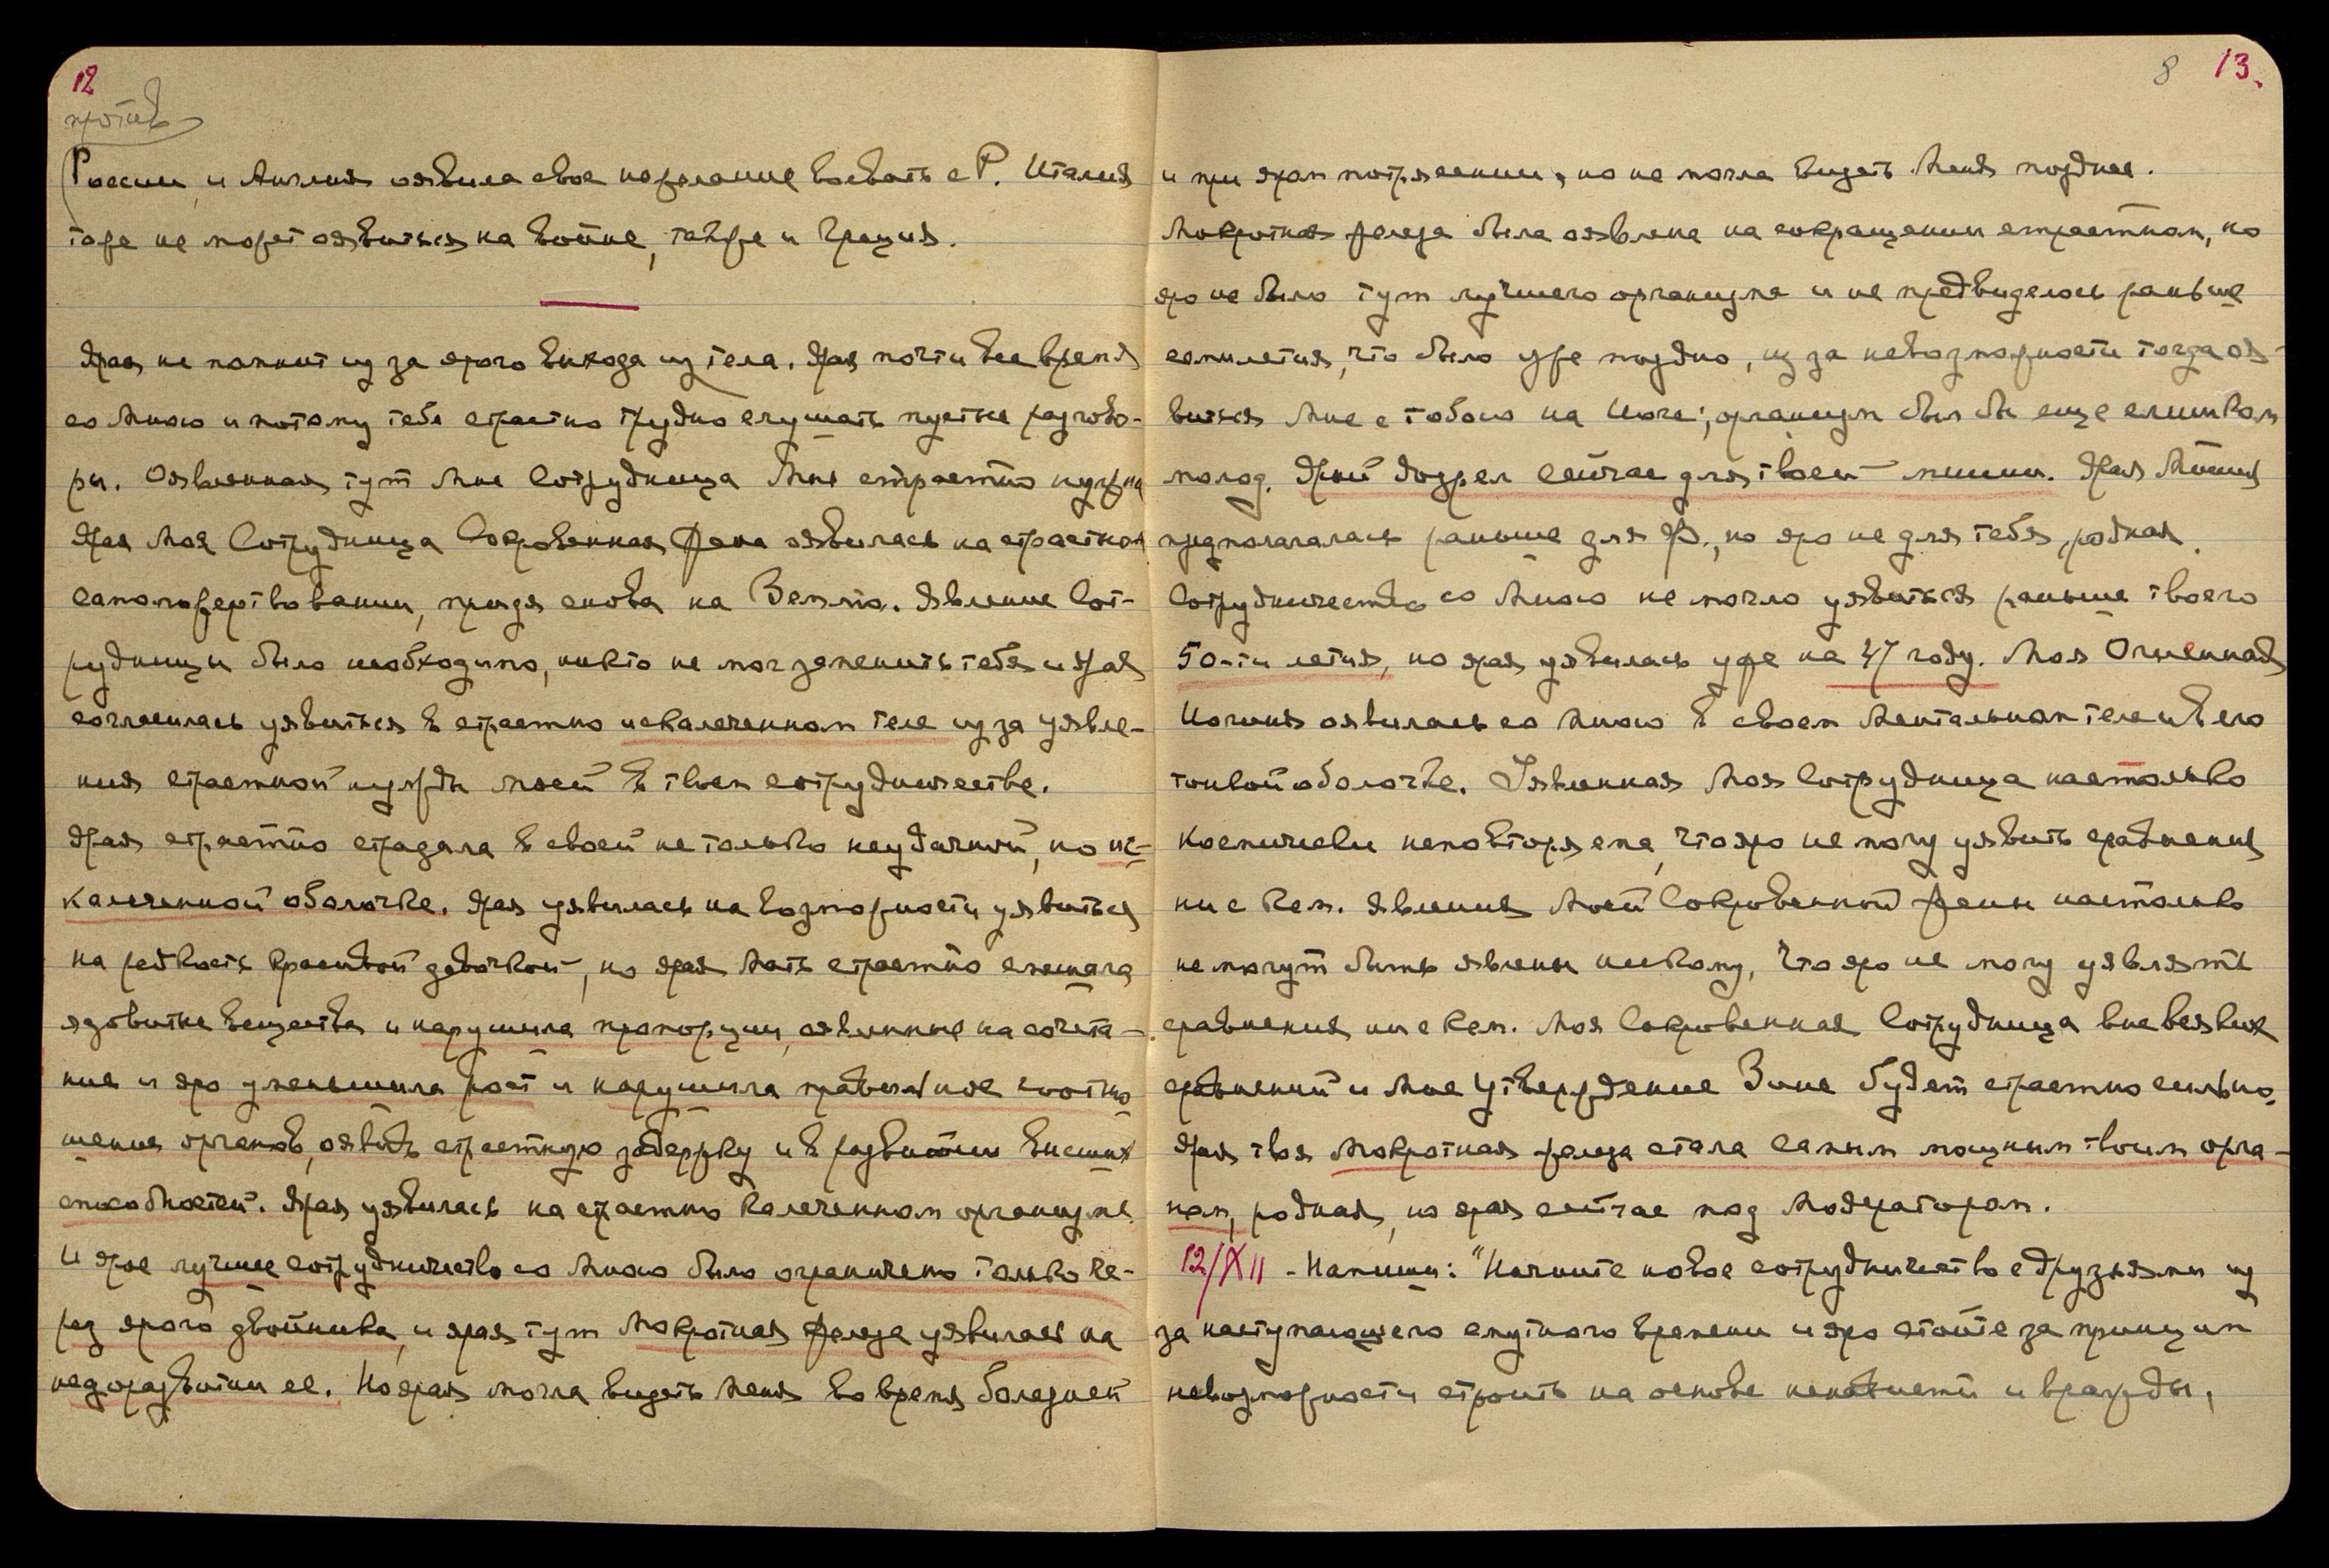 12
против
России, и Англия оявила свое нежелание воевать с Р. Италия
тоже не может оявиться на войне, также и Греция.
Ярая не помнит из за ярого выхода из тела. Ярая почти все время
со Мною и потому тебе страстно трудно слушать пустые разгово-
ры. Оявленная тут Мне Сотрудница Мне страстно нужна
Ярая Моя Сотрудница Сокровенная Жена оявилась на страстном
самопожертвовании, придя снова на Землю. Явление Сот-
рудницы было необходимо, никто не мог заменить тебя и Ярая
согласилась уявиться в страстно искалеченном теле из за уявле-
ния страстной нужды Моей в твоем сотрудничестве.
Ярая страстно страдала в своей не только неудачной, но ис-
калеченной оболочке. Ярая уявилась на возможности уявиться
на редкость красивой девочкой, но ярая Мать страстно смешала
ядовитые вещества и нарушила пропорции, оявленные на сочета-
ние и яро уменьшила рост и нарушила правильное соотно
шение органов, оявить страстную задержку и в развитии высших
способностей. Ярая уявилась на страстно калеченном организме.
И ярое лучшее сотрудничество со Мною было ограничено только че-
рез ярого двойника, и ярая тут Мокротная железа уявилась на
недоразвитии ее. Но ярая могла видеть Меня во время болезней
8 13.
и при яром потрясении, но не могла видеть Меня позднее.
Мокротная железа была оявлена на сокращении страстном, но
яро не было тут лучшего организма и не предвиделось раньше
семилетия, что было уже поздно, из за невозможности тогда оя-
виться Мне с тобою на Йоге; организм был бы еще слишком
молод. Ярый дозрел сейчас для твоей миссии. Ярая Миссия
предполагалась раньше для Ф., но яро не для тебя, родная.
Сотрудничество со Мною не могло уявиться раньше твоего
50-ти летия, но ярая уявилась уже на 47 году. Моя Огненная
Иогиня оявилась со Мною в своем Ментальном теле и в его
тонкой оболочке. Уявленная Моя Сотрудница настолько
космически неповторяема, что яро не могу уявить сравнения
ни с кем. Явления Моей Сокровенной Жены настолько
не могут быть явлены никому, что яро не могу уявлять
сравнения ни с кем. Моя Сокровенная Сотрудница вне всяких
сравнений и Мое Утверждение Зине будет страстно сильно.
Ярая твоя Мокротная железа стала самым мощным твоим орга-
ном, родная, но ярая сейчас под Модератором.
12/XII - Напиши: "Начните новое сотрудничество с друзьями из
за наступающего смутного времени и яро стойте за принцип
невозможности строить на основе ненависти и вражды,